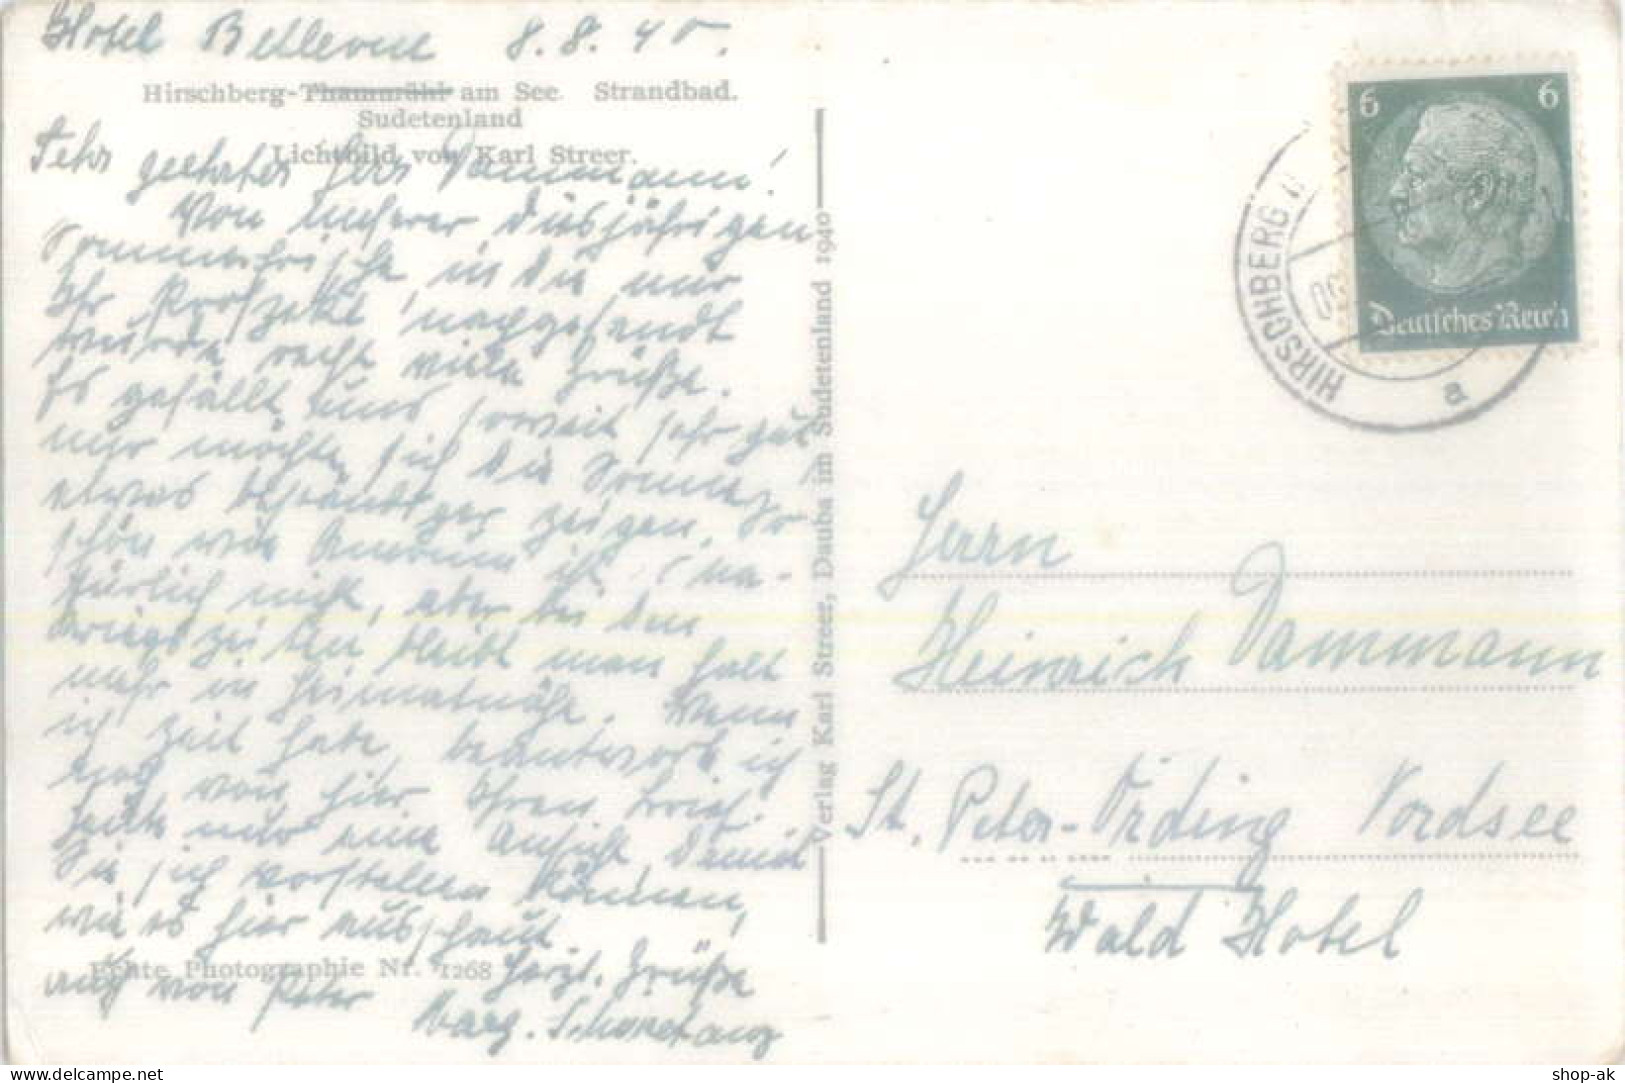 Hotel Bellevue 8.8.40.
Hirschberg-Thammühl am See. Strandbad.
Sudetenland
Lichtbild von Karl Streer.
Sehr geehrter Herr Dammann!
Von unserer diesjährigen
Sommerfrische in die mir
Ihr nachgesandt
wurde recht viele Grüße.
Es gefällt uns soweit sehr gut
nur möchte sich die Sonne
etwas beständiger zeigen. So
schön wie Amrum ist (na-
türlich nicht, aber bei den
Kriegszeiten bleibt man halt
mehr in Heimatnähe. Wenn
ich Zeit habe, beantworte ich
noch von hier Ihren Brief.
Heute nur eine Ansicht damit
Sie sich vorstellen können,
wie es hier ausschaut.
Echte Photographie Nr. 1268
Herzl. Grüße
auch von Peter
Marg.
Verlag Karl Streer, Dauba im Sudetenland 1940
6 6
Deutsches Reich
HIRSCHBERG
a
Herrn
Heinrich Dammann
St. Peter-Ording Nordsee
Wald Hotel
shop-ak
delcampe.net